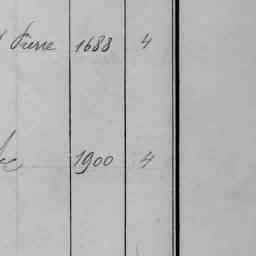 Pierre 1688 4
1900 4